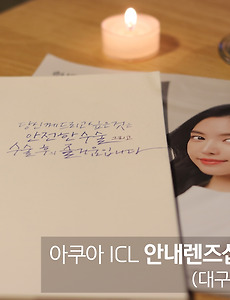 당신께 드리고 싶은 것은
안전한 수술 그리고
수술 후의 즐거움입니다
아쿠아 ICL 안내렌즈삽
(대구